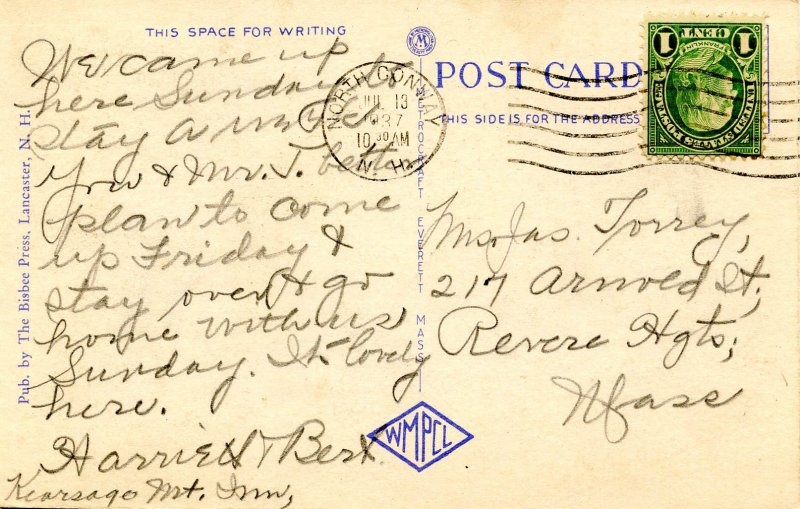 THIS SPACE FOR WRITING
We came up
here Sunday to
stay a week
You & Mr. T. better
plan to come
up Friday &
stay over & go
home with us
Sunday. It's lovely
here.
Harriet & Bert
Kearsage Mt. Inn,
Pub. by The Bisbee Press, Lancaster, N. H.
METROCRAFT EVERETT MASS
WMPCL
POST CARD
THIS SIDE IS FOR THE ADDRESS
NORTH CONWAY
JUL 13
1937
10 30 AM
N. H.
1 CENT 1
FRANKLIN
UNITED STATES POSTAGE
Mrs. Jas. Torrey,
217 Arnold St.,
Revere Hgts;
Mass